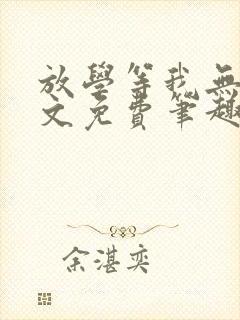 放學等我無
文免費筆趣
余湛奕